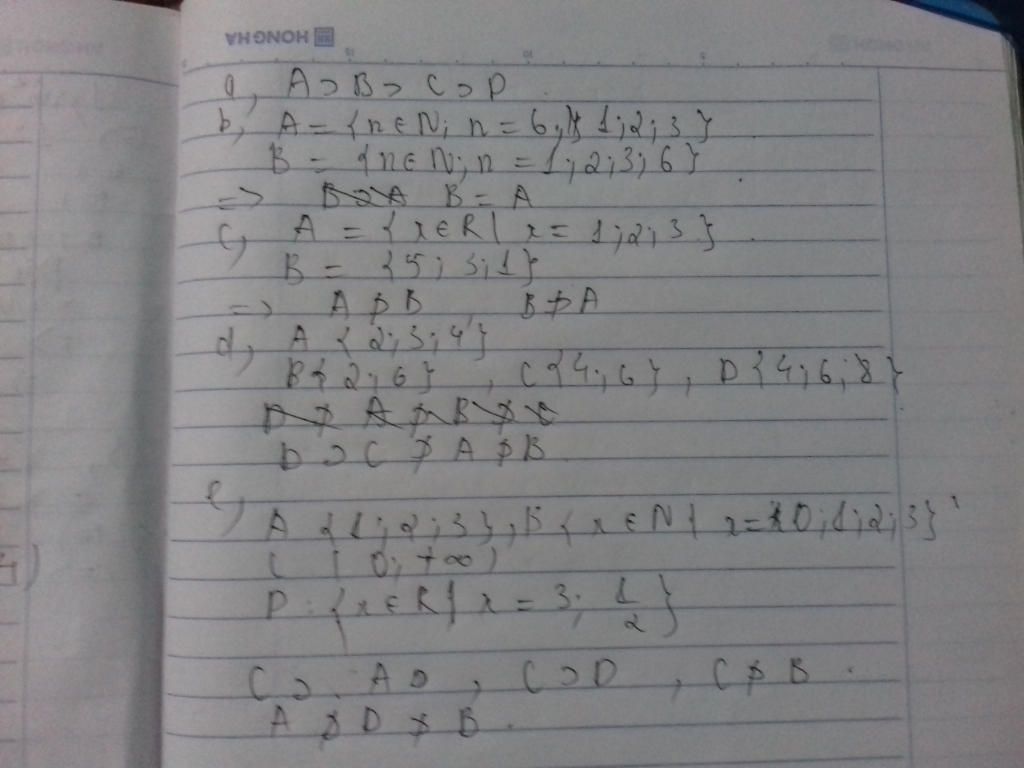 HONG HA
a, A ⊃ B ⊃ C ⊃ D
b, A = {n ∈ N; n = 6; 1; 2; 3}
B = {n ∈ N; n = 1; 2; 3; 6}
=> B = A
c, A = {x ∈ R | x = 1; 2; 3}
B = {5; 3; 1}
=> A ⊅ B, B ⊅ A
d, A {2; 3; 4}
B {2; 6}, C {4; 6}, D {4; 6; 8}
D ⊅ A ⊅ B ⊅ C
D ⊃ C ⊅ A ⊅ B
e,
A {1; 2; 3}, B {x ∈ N | x = 0; 1; 2; 3}
C [0; +∞)
D: {x ∈ R | x = 3; 1/2}
C ⊃ A, C ⊃ D, C ⊅ B.
A ⊅ D ⊅ B.